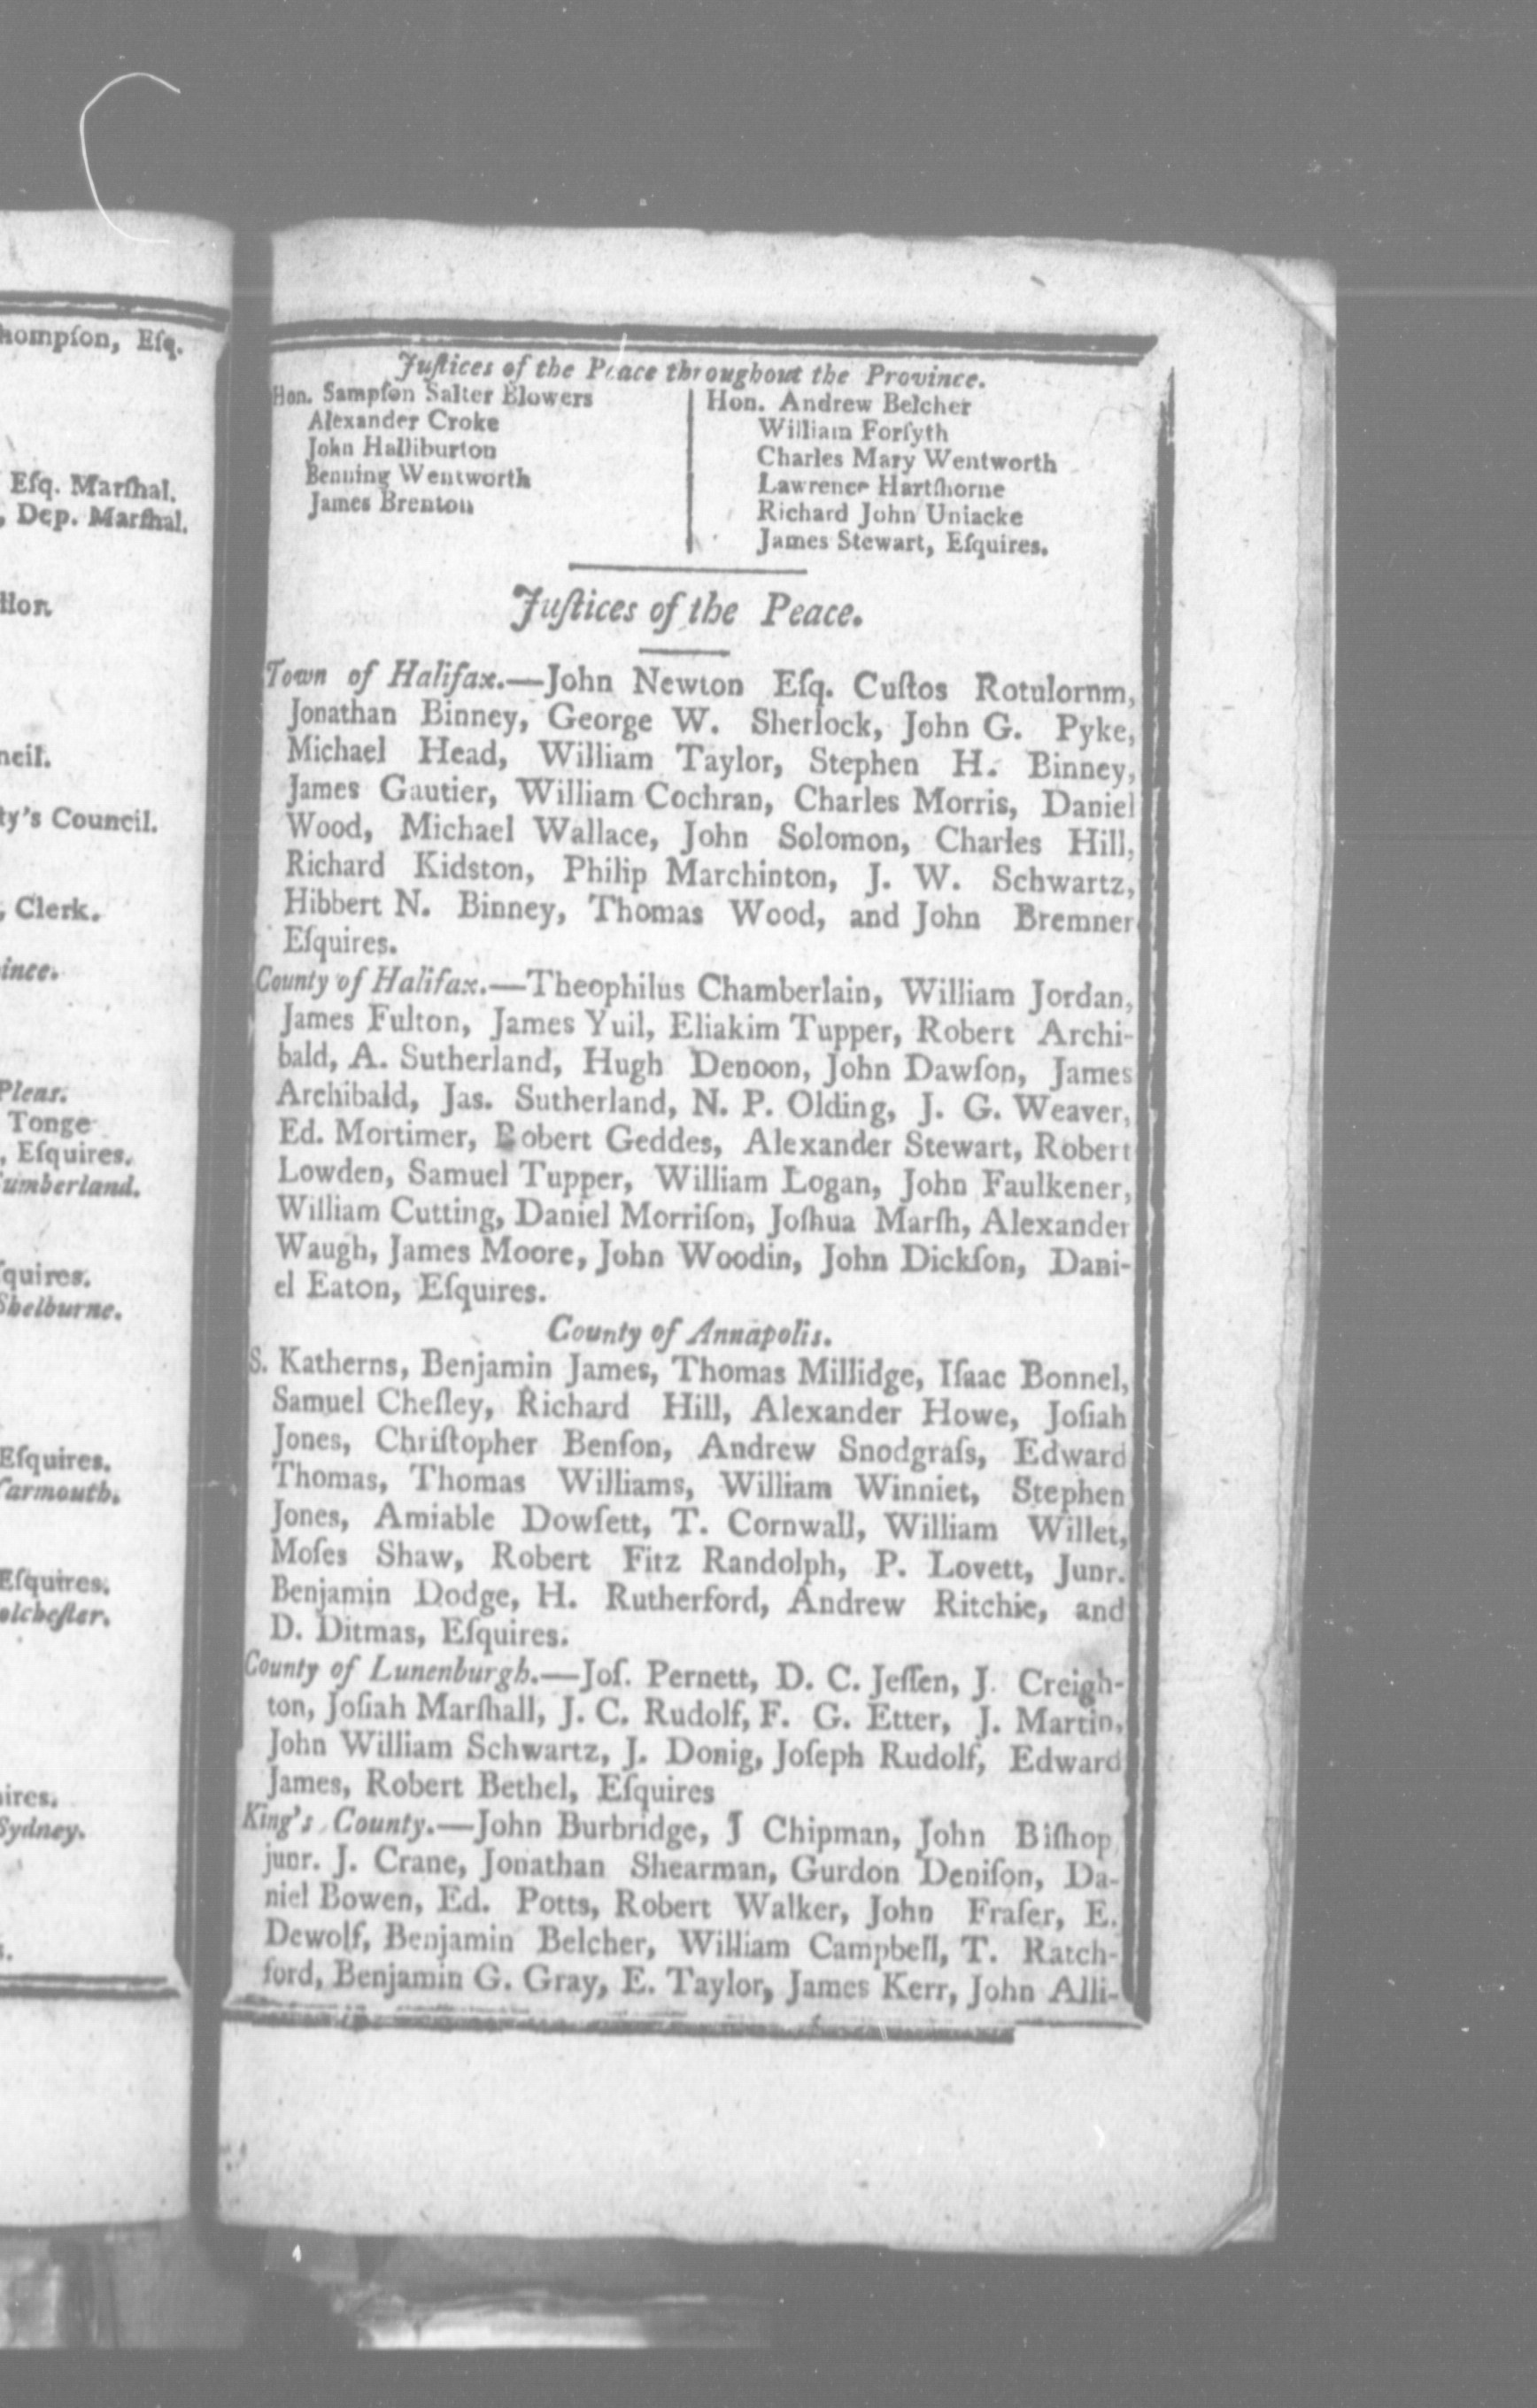 hompſon, Eſq.
Eſq. Marſhal.
, Dep. Marſhal.
neil.
ty's Council.
, Clerk.
ince.
Pleas.
Tonge
, Eſquires.
Cumberland.
ſquires.
Shelburne.
Eſquires.
Yarmouth.
Eſquires.
olcheſter.
ires.
Sydney.
s.
Juſtices of the Peace throughout the Province.
Hon. Sampſon Salter Blowers
Alexander Croke
John Halliburton
Benning Wentworth
James Brenton
Hon. Andrew Belcher
William Forſyth
Charles Mary Wentworth
Lawrence Hartſhorne
Richard John Uniacke
James Stewart, Eſquires.
Juſtices of the Peace.
Town of Halifax.—John Newton Eſq. Cuſtos Rotulornm,
Jonathan Binney, George W. Sherlock, John G. Pyke,
Michael Head, William Taylor, Stephen H. Binney,
James Gautier, William Cochran, Charles Morris, Daniel
Wood, Michael Wallace, John Solomon, Charles Hill,
Richard Kidston, Philip Marchinton, J. W. Schwartz,
Hibbert N. Binney, Thomas Wood, and John Bremner
Eſquires.
County of Halifax.—Theophilus Chamberlain, William Jordan,
James Fulton, James Yuil, Eliakim Tupper, Robert Archi-
bald, A. Sutherland, Hugh Denoon, John Dawſon, James
Archibald, Jas. Sutherland, N. P. Olding, J. G. Weaver,
Ed. Mortimer, Robert Geddes, Alexander Stewart, Robert
Lowden, Samuel Tupper, William Logan, John Faulkener,
William Cutting, Daniel Morriſon, Joſhua Marſh, Alexander
Waugh, James Moore, John Woodin, John Dickſon, Dani-
el Eaton, Eſquires.
County of Annapolis.
S. Katherns, Benjamin James, Thomas Millidge, Iſaac Bonnel,
Samuel Cheſley, Richard Hill, Alexander Howe, Joſiah
Jones, Chriſtopher Benſon, Andrew Snodgraſs, Edward
Thomas, Thomas Williams, William Winniet, Stephen
Jones, Amiable Dowſett, T. Cornwall, William Willet,
Moſes Shaw, Robert Fitz Randolph, P. Lovett, Junr.
Benjamin Dodge, H. Rutherford, Andrew Ritchie, and
D. Ditmas, Eſquires.
County of Lunenburgh.—Joſ. Pernett, D. C. Jeſſen, J. Creigh-
ton, Joſiah Marſhall, J. C. Rudolf, F. G. Etter, J. Martin,
John William Schwartz, J. Donig, Joſeph Rudolf, Edward
James, Robert Bethel, Eſquires
King's County.—John Burbridge, J Chipman, John Biſhop
junr. J. Crane, Jonathan Shearman, Gurdon Deniſon, Da-
niel Bowen, Ed. Potts, Robert Walker, John Fraſer, E.
Dewolf, Benjamin Belcher, William Campbell, T. Ratch-
ford, Benjamin G. Gray, E. Taylor, James Kerr, John Alli-